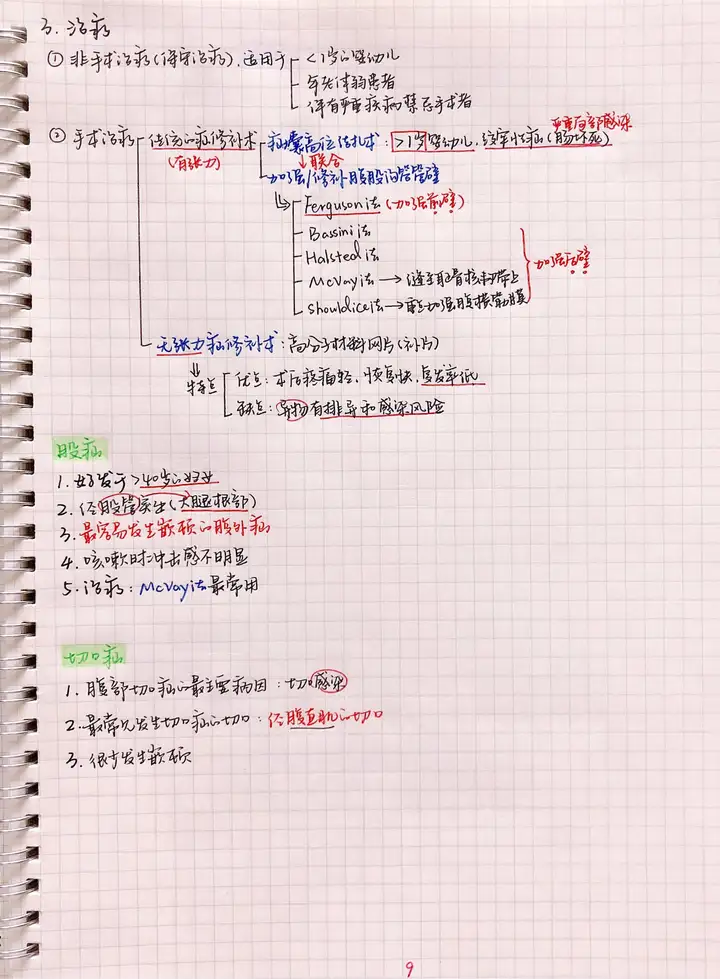 3. 治疗
① 非手术治疗(保守治疗).适用于 <1岁的婴幼儿
年老体弱患者
伴有严重疾病禁忌手术者
严重局部感染
② 手术治疗 传统的疝修补术 疝囊高位结扎术:>1岁婴幼儿,绞窄性疝(肠坏死)
(有张力) 联合
加强/修补腹股沟管管壁
Ferguson法(加强前壁)
Bassini法
Halsted法
McVay法→缝至耻骨梳韧带上 加强后壁
shouldice法→重点加强腹横筋膜
无张力疝修补术:高分子材料网片(补片)
特点 优点:术后疼痛轻,恢复快,复发率低
缺点:异物有排异和感染风险
股疝
1.好发于>40岁的妇女
2.经股管突出(大腿根部)
3.最容易发生嵌顿的腹外疝
4.咳嗽时冲击感不明显
5.治疗:McVay法最常用
切口疝
1.腹部切口疝的最主要病因:切口感染
2.最常见发生切口疝的切口:经腹直肌的切口
3.很少发生嵌顿
9